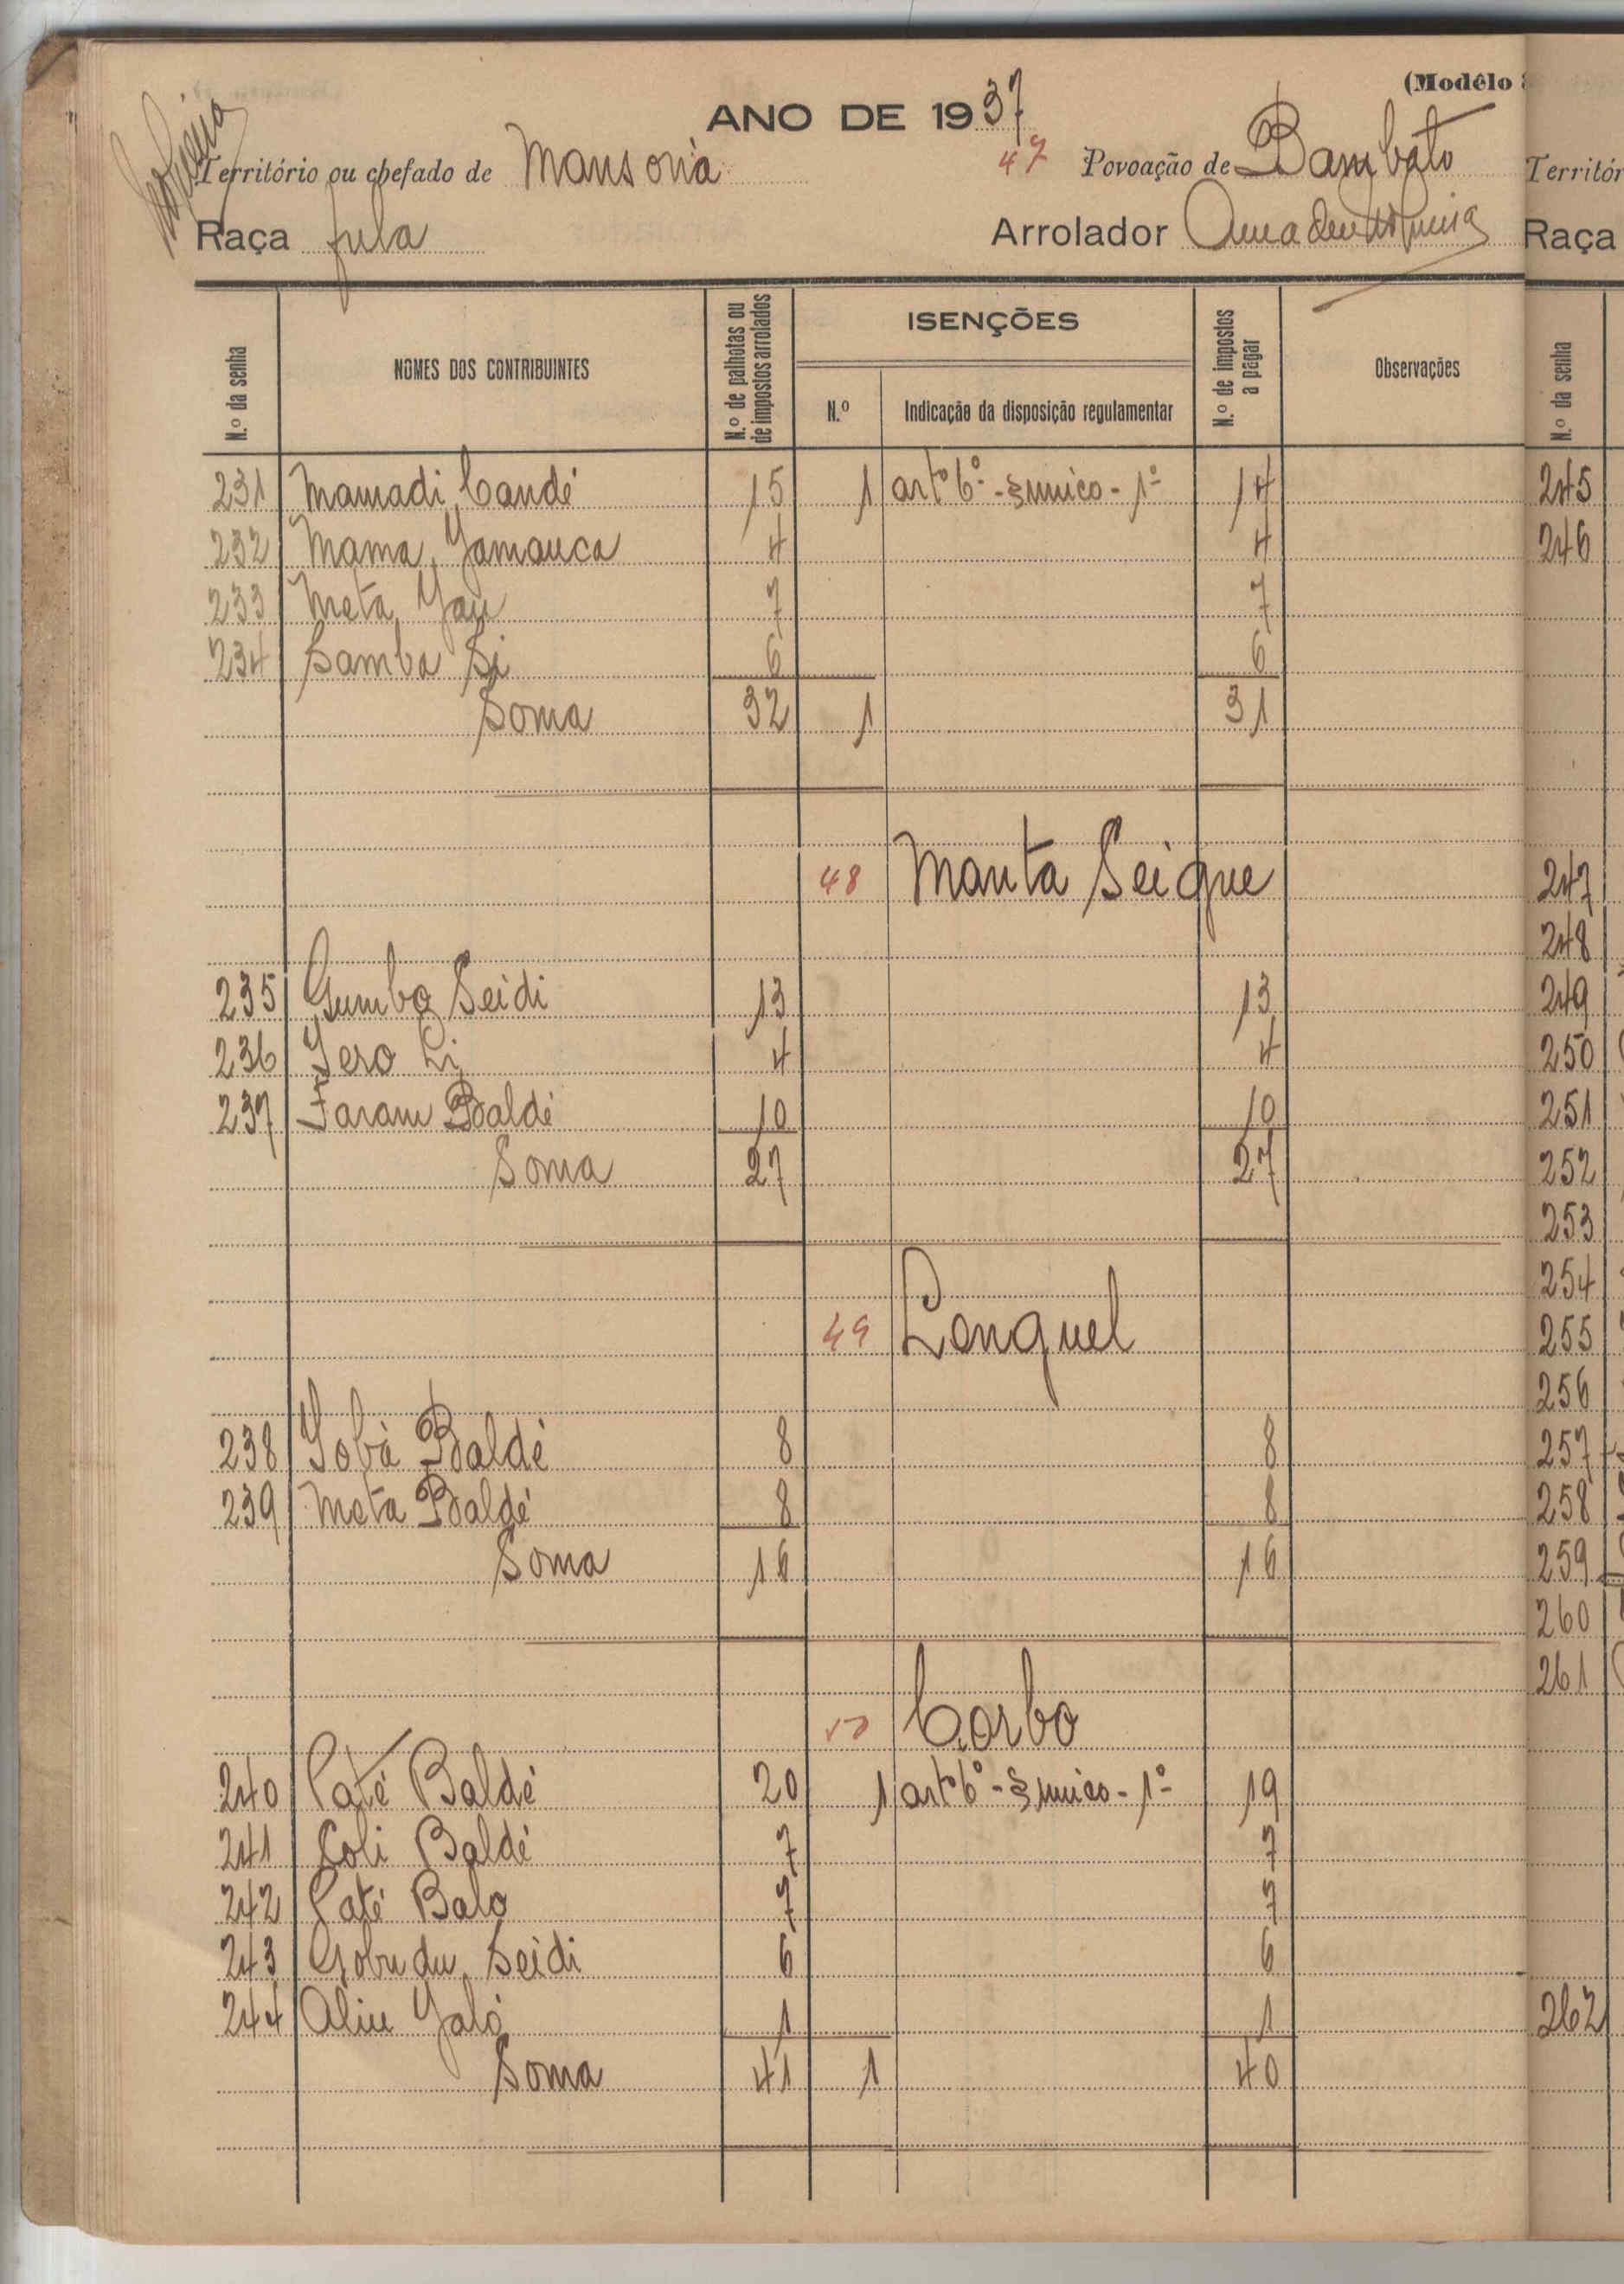 (Modêlo
ANO DE 1937
Território ou chefado de Mansoná 47 Povoação de Bambato
Raça fula Arrolador Amadeu Nogueira
N.º da senha NOMES DOS CONTRIBUINTES N.º de palhotas ou de impostos arrolados ISENÇÕES N.º de impostos a pagar Observações
N.º Indicação da disposição regulamentar
231 Mamadi Candé 15 1 artº 6º - § unico - 1º 14
232 Mama Jamanca 4 4
233 Meta Jau 7 7
234 Samba Si 6 6
Soma 32 1 31
48 Manta Seique
235 Gumbo Seidi 13 13
236 Jero Li 4 4
237 Faram Baldé 10 10
Soma 27 27
49 Lenquel
238 Jobà Baldé 8 8
239 Meta Baldé 8 8
Soma 16 16
50 Carbo
240 Paté Baldé 20 1 artº 6º - § unico - 1º 19
241 Coli Baldé 7 7
242 Paté Balo 7 7
243 Gobudu Seidi 6 6
244 Aliu Jaló 1 1
Soma 41 1 40
Territór
Raça
N.º da senha
245
246
247
248
249
250
251
252
253
254
255
256
257
258
259
260
261
262